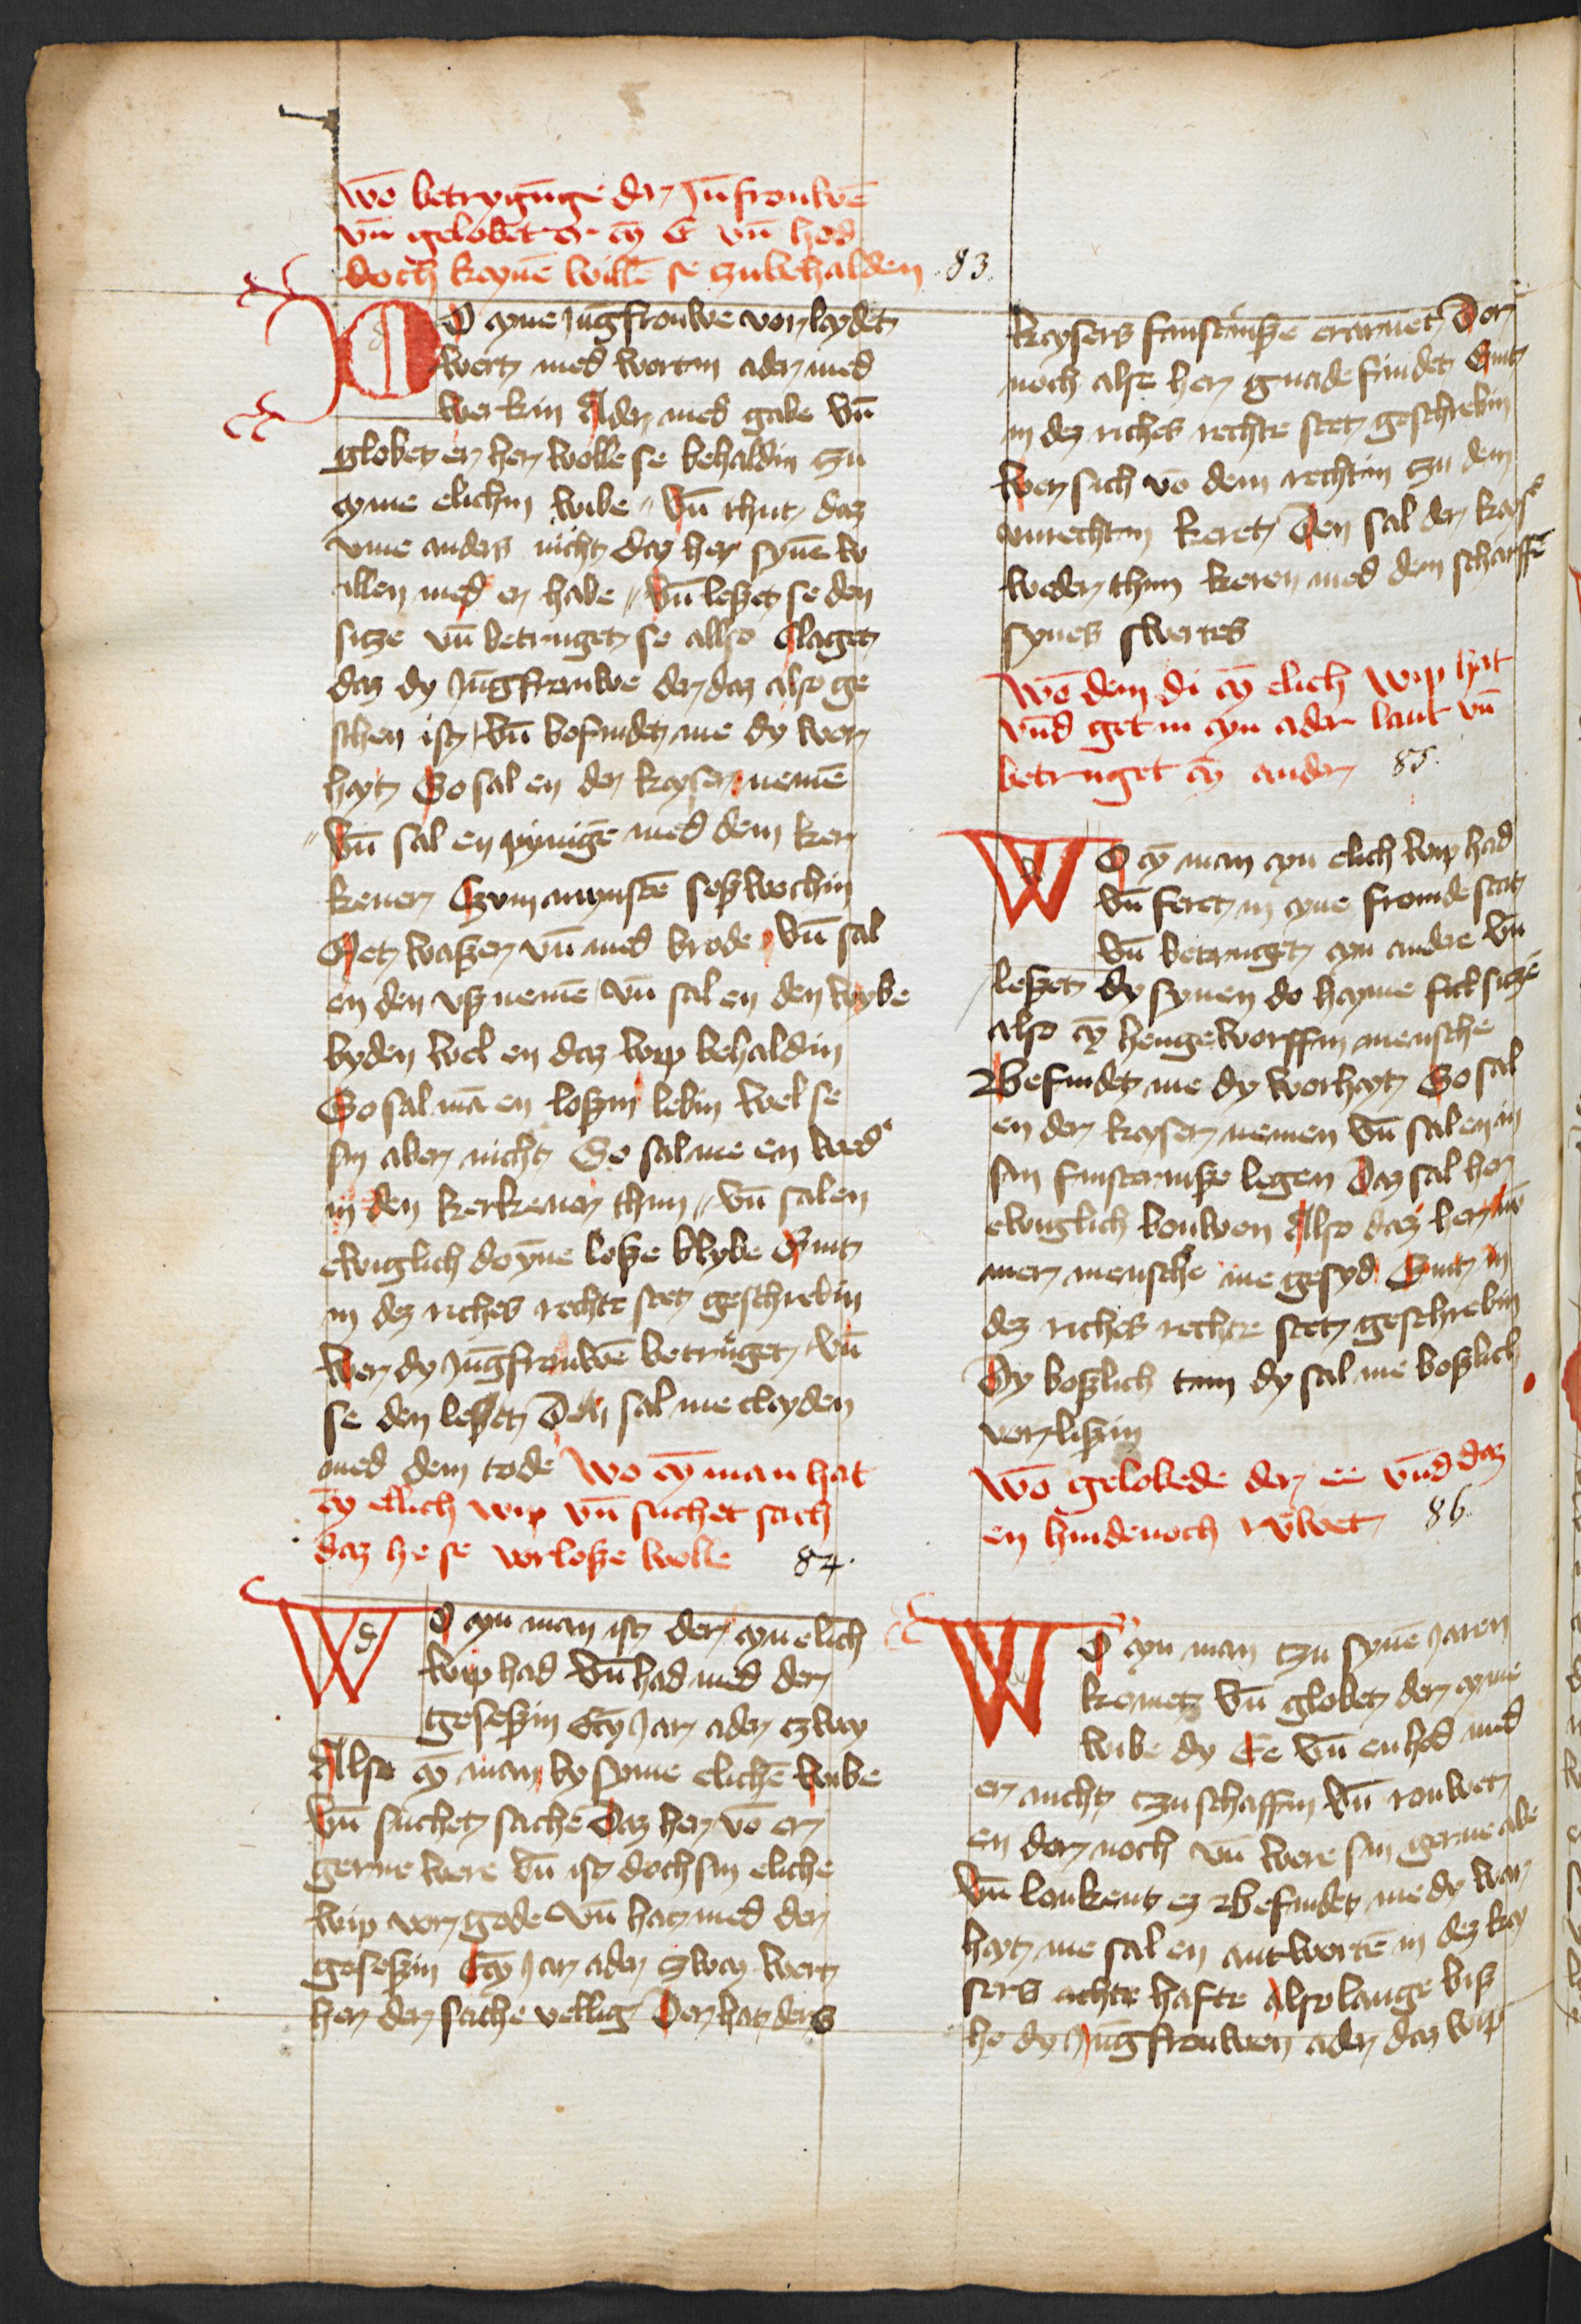 Wō betrygūge der Jūfrouwē
vn̄ gelobet er eȳ E vn̄ hod
doch keynē willē se zubehalden 83.
O eyne jūgfrouwe vorleydet
wert med wortin ader med
werkin Ader med gabe vn̄
globet er her wolle se behaldin zu
eyme elichin wibe vn̄ thut daz
vme anders nicht daz her synē w
illen med er habe vn̄ leßet se den
sitze vn̄ betruget se allso Claget
daz dy jūgfrauwe der daz also ge
schen ist vn̄ befindet me dy wor
heyt So sal en der keyser nemē
vn̄ sal en pynigē med dem ker
kener Czum mynstē seßwochin
Met waßer vn̄ med brode vn̄ sal
en den vßnemē vn̄ sal en den wybe
byden wel en daz wip behaldin
So sal mā en loßin lebin wel se
sin aber nicht So sal me en wed'
in den kerkener thun vn̄ sal en
ewiglich do ȳne loße blybe Sint
in dez riches rechte stet geschrebin
wer dy jūgfrouwē betruget vn̄
se den leßet Den sal me cleyden
med dem tode Wo eȳ man hat
eȳ ellich wip vn̄ suchet sach
daz he se vorloße wolle 84.
WO eyn man ist der eyn elich
wip had vn̄ had med der
geseßin Eȳ Jar ader zwey
Also eȳ man by syme elichē wibe
vn̄ suchet sache Daz her vō er
gerne were vn̄ ist doch sin eliche
wip vor gode vn̄ hat med der
geseßin Eȳ Jar ader zwey wert
her der sache vellig Der hat ders
keysers finsternße erarnet Dor
noch alse her gnade findet Sint
in dez riches rechte stet geschrebin
Wer sich vō dem rechtin zu dem
vnrechtin keret Den sal der keys'
weder thun keren med dem scharffē
synes swertes
Wō dem di eȳ elich wip hat
vnd get in eyn ader lant vn̄
betruget eȳ ander 85.
WO eȳ man eyn elich wip had
vn̄ feret in eyne fromde stat
vn̄ betruget eyn andere vn̄
leßet dy synen do heyme sitzē
also eȳ hengeworffin mensche
Befindet me dy worheyt So sal
en der keyser nemen vn̄ sal en in
sin finsternße legen Daz sal her
ewiglich bouwen Also daz her nū
mer mensche me gesyd Sint in
dez riches rechte stet geschrebin
Dy boßlich tun dy sal me boßlich
vorlißin
Wō gelobede der ee vnd daz
en hindenoch ruwet 86.
WO eyn man zu synē jaren
komet vn̄ globet der eyme
wibe dy Ee vn̄ en hod med
er nicht zu schaffin vn̄ rouwet
en dor noch vn̄ were sin gerne abe
vn̄ loukent ez Befindet me dy war
heyt me sal en antwertē in dez key
sers achte hafte also lange biß
he dy Jūgfrouwen ader daz wip